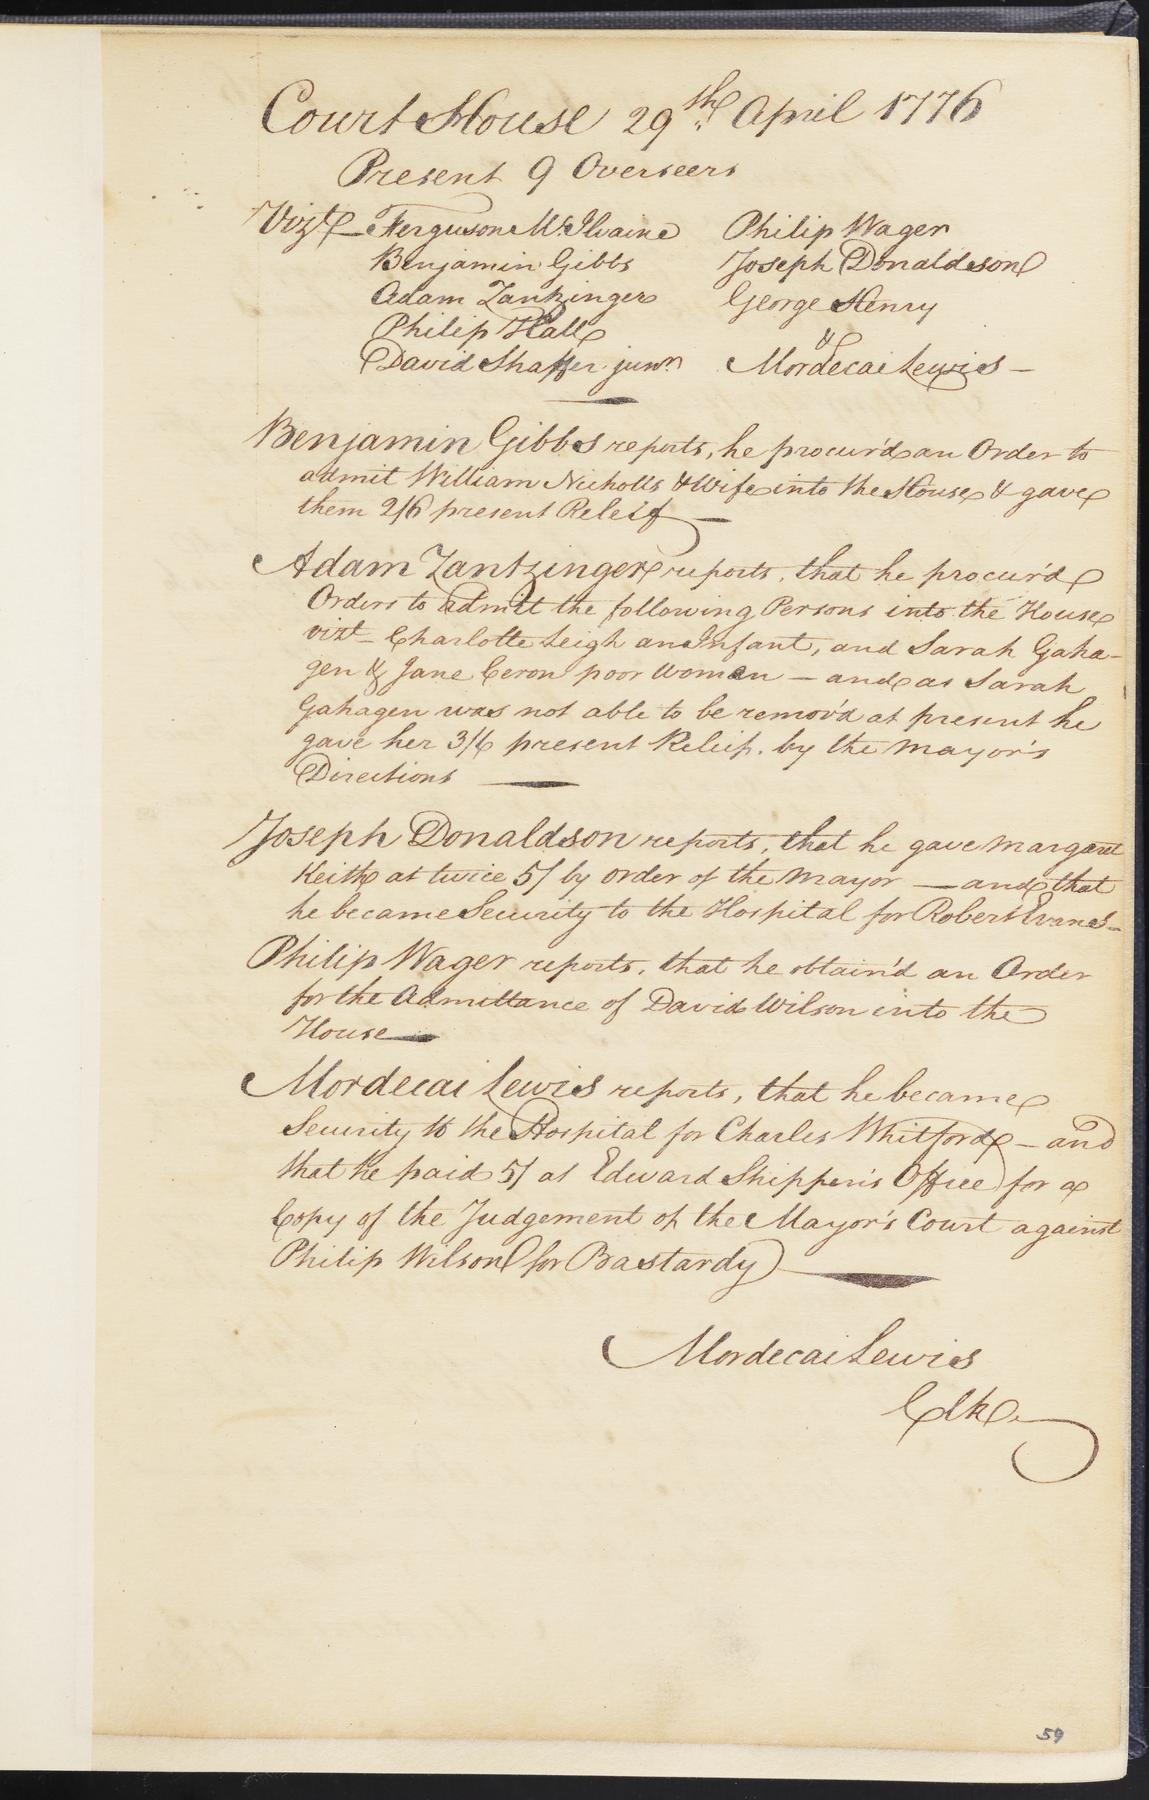 Court House 29th April 1776
Present 9 Overseers
Vizt Ferguson McIlvaine Philip Wager
Benjamin Gibbs Joseph Donaldson
Adam Zantzinger George Henry
Philip Hall &
David Shaffer junr. Mordecai Lewis —
Benjamin Gibbs reports, he procur'd an Order to
admit William Nicholls & Wife into the House & gave
them 2/6 present Releif —
Adam Zantzinger reports, that he procur'd
Orders to admitt the following Persons into the House
vizt Charlotte Leigh an Infant, and Sarah Gaha-
gen & Jane Ceron poor Women — and as Sarah
Gahagen was not able to be remov'd at present he
gave her 3/6 present Releif. by the Mayor's
Directions —
Joseph Donaldson reports, that he gave Margaret
Keith at twice 5/ by order of the Mayor — and that
he became Security to the Hospital for Robert Evans —
Philip Wager reports, that he obtain'd an Order
for the Admittance of David Wilson into the
House —
Mordecai Lewis reports, that he became
Security to the Hospital for Charles Whitford — and
that he paid 5/ at Edward Shippen's Office for a
Copy of the Judgement of the Mayor's Court against
Philip Wilson (for Bastardy) —
Mordecai Lewis
Clk.
59